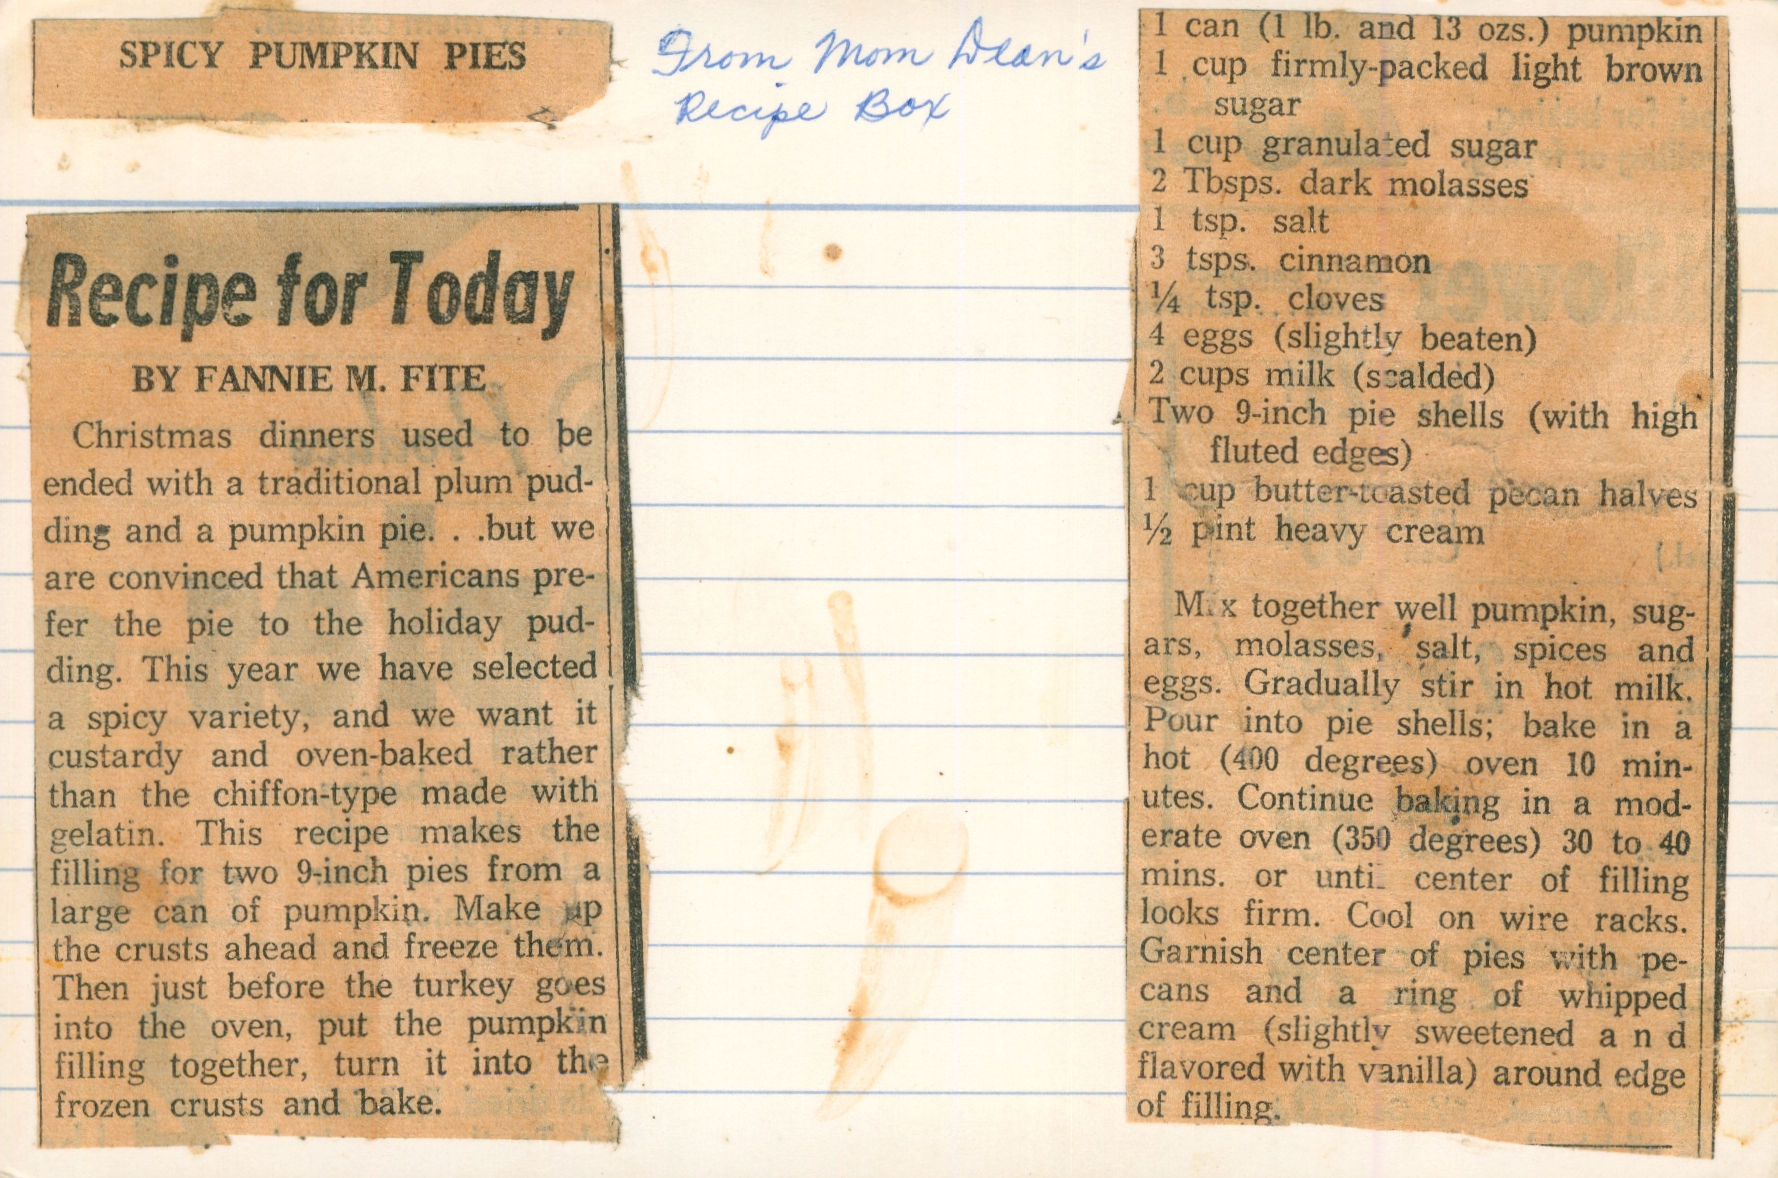 SPICY PUMPKIN PIES
From Mom Dean's
Recipe Box
Recipe for Today
BY FANNIE M. FITE
Christmas dinners used to be
ended with a traditional plum pud-
ding and a pumpkin pie. . .but we
are convinced that Americans pre-
fer the pie to the holiday pud-
ding. This year we have selected
a spicy variety, and we want it
custardy and oven-baked rather
than the chiffon-type made with
gelatin. This recipe makes the
filling for two 9-inch pies from a
large can of pumpkin. Make up
the crusts ahead and freeze them.
Then just before the turkey goes
into the oven, put the pumpkin
filling together, turn it into the
frozen crusts and bake.
1 can (1 lb. and 13 ozs.) pumpkin
1 cup firmly-packed light brown
sugar
1 cup granulated sugar
2 Tbsps. dark molasses
1 tsp. salt
3 tsps. cinnamon
¼ tsp. cloves
4 eggs (slightly beaten)
2 cups milk (scalded)
Two 9-inch pie shells (with high
fluted edges)
1 cup butter-toasted pecan halves
½ pint heavy cream
Mix together well pumpkin, sug-
ars, molasses, salt, spices and
eggs. Gradually stir in hot milk.
Pour into pie shells; bake in a
hot (400 degrees) oven 10 min-
utes. Continue baking in a mod-
erate oven (350 degrees) 30 to 40
mins. or until center of filling
looks firm. Cool on wire racks.
Garnish center of pies with pe-
cans and a ring of whipped
cream (slightly sweetened and
flavored with vanilla) around edge
of filling.